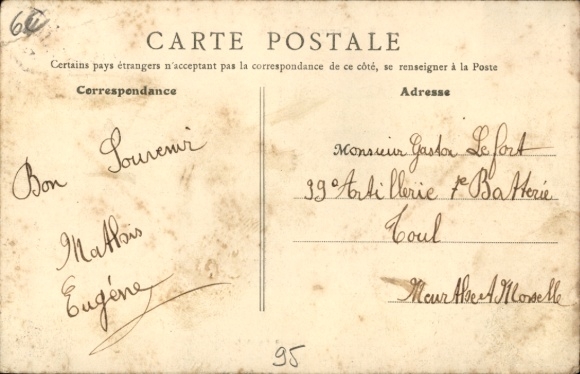 60
CARTE POSTALE
Certains pays étrangers n'acceptant pas la correspondance de ce côté, se renseigner à la Poste
Correspondance
Bon Souvenir
Mathis
Eugéne
Adresse
Monsieur Gaston Lefort
39e Artillerie 7e Batterie
Toul
Meurthe et Moselle
95